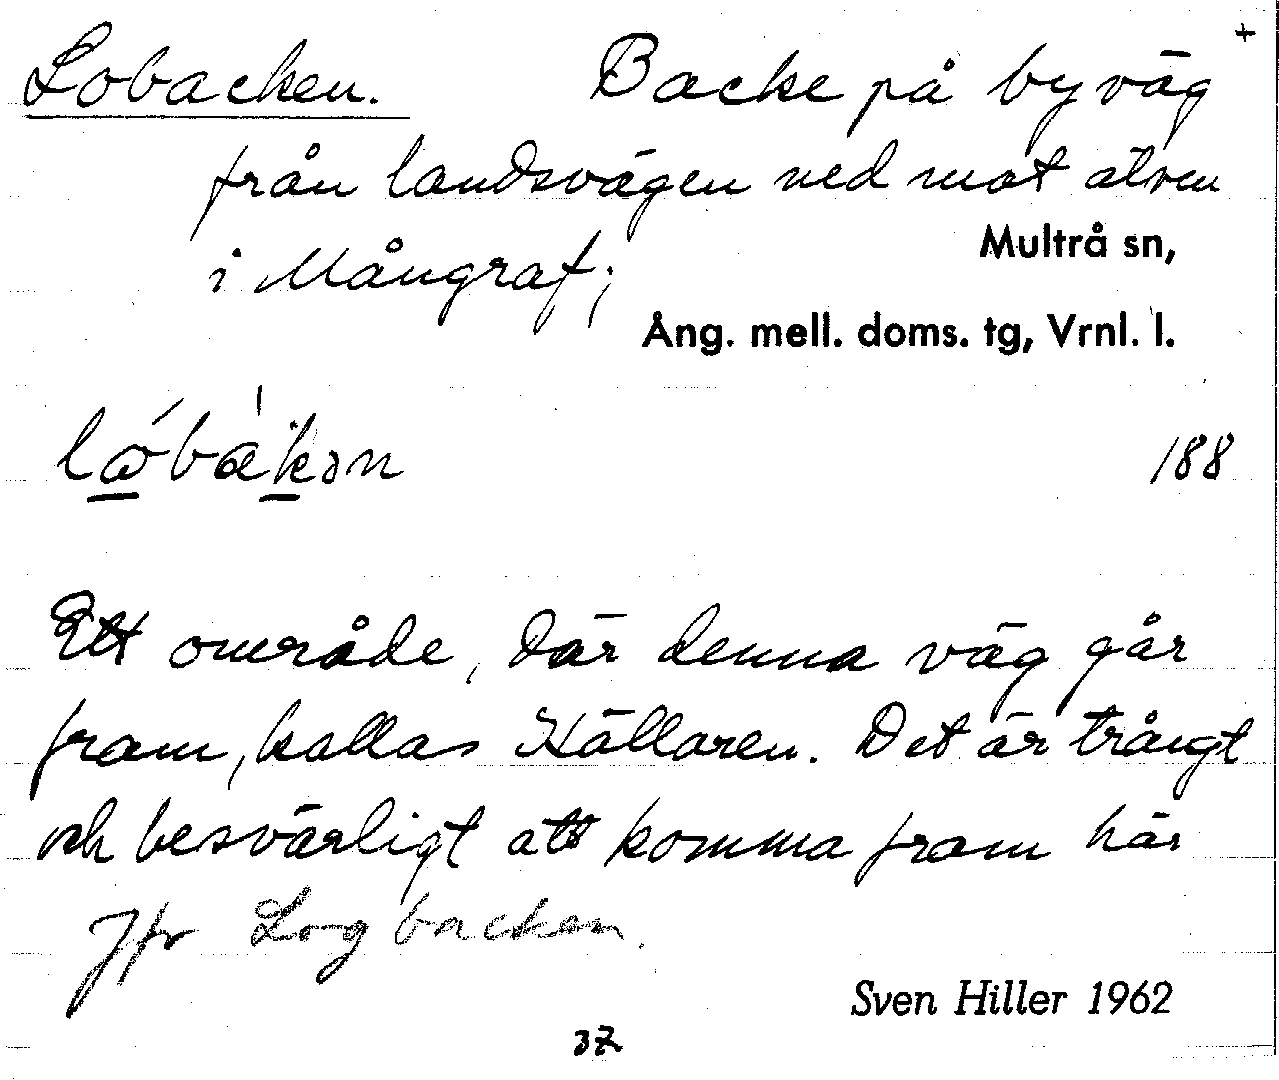 +
Lobacken. Backe på byväg
från landsvägen ned mot älven
i Mångraf;
Multrå sn,
Ång. mell. doms. tg, Vrnl. l.
188
Ett område, där denna väg går
fram, kallas Källaren. Det är trångt
och besvärligt att komma fram här
Jfr Logbacken.
Sven Hiller 1962
37